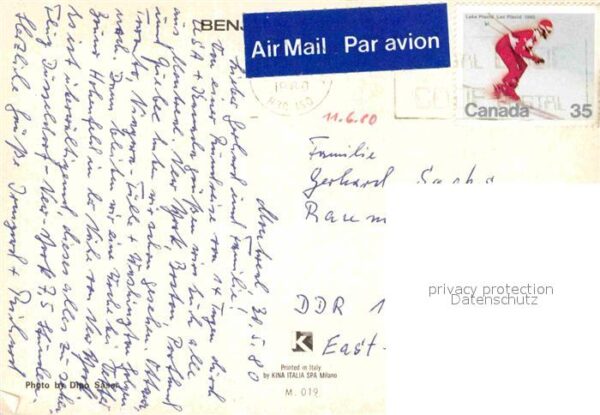 BENJ
Air Mail Par avion
Lake Placid, Lac Placid, 1980
Canada 35
11.6.80
Familie
Gerhard
Raum
DDR 1
East-
privacy protection
Datenschutz
K
Printed in Italy
by KINA ITALIA SPA Milano
M. 019
Photo by Dino Sassi
Montreal 20.5.80
Lieber Gerhard und Familie!
Von einer Rundreise von 14 Tagen durch
USA + Kanada grüßen wir Euch alle
aus Montreal. New York, Boston, Portland
und Quebec haben wir schon gesehen. Ottawa,
Toronto, Niagara-Fälle + Washington folgen
noch. Dann bleiben wir eine Woche bei
in der Nähe von New York.
Es ist überwältigend, dieses alles zu sehen.
Flug Düsseldorf - New-York 7,5 Stunden.
Herzliche Grüße Irmgard +